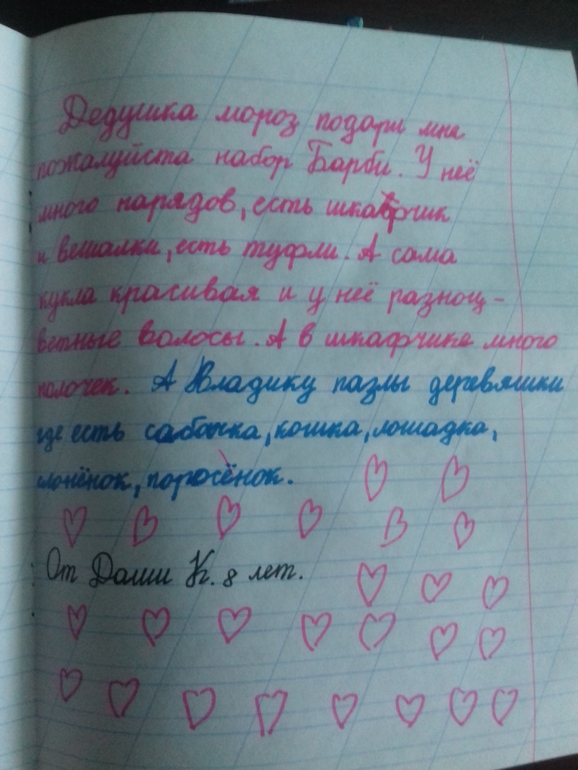 Дедушка мороз подари мне
пожалуйста набор Барби. У неё
много нарядов, есть шкафчик
и вешалки, есть туфли. А сама
кукла красивая и у неё разноц-
ветные волосы. А в шкафчике много
полочек. А Владику пазлы деревяшки
где есть сабочка, кошка, лошадка,
слонёнок, поросёнок.
От Даши К. 8 лет.